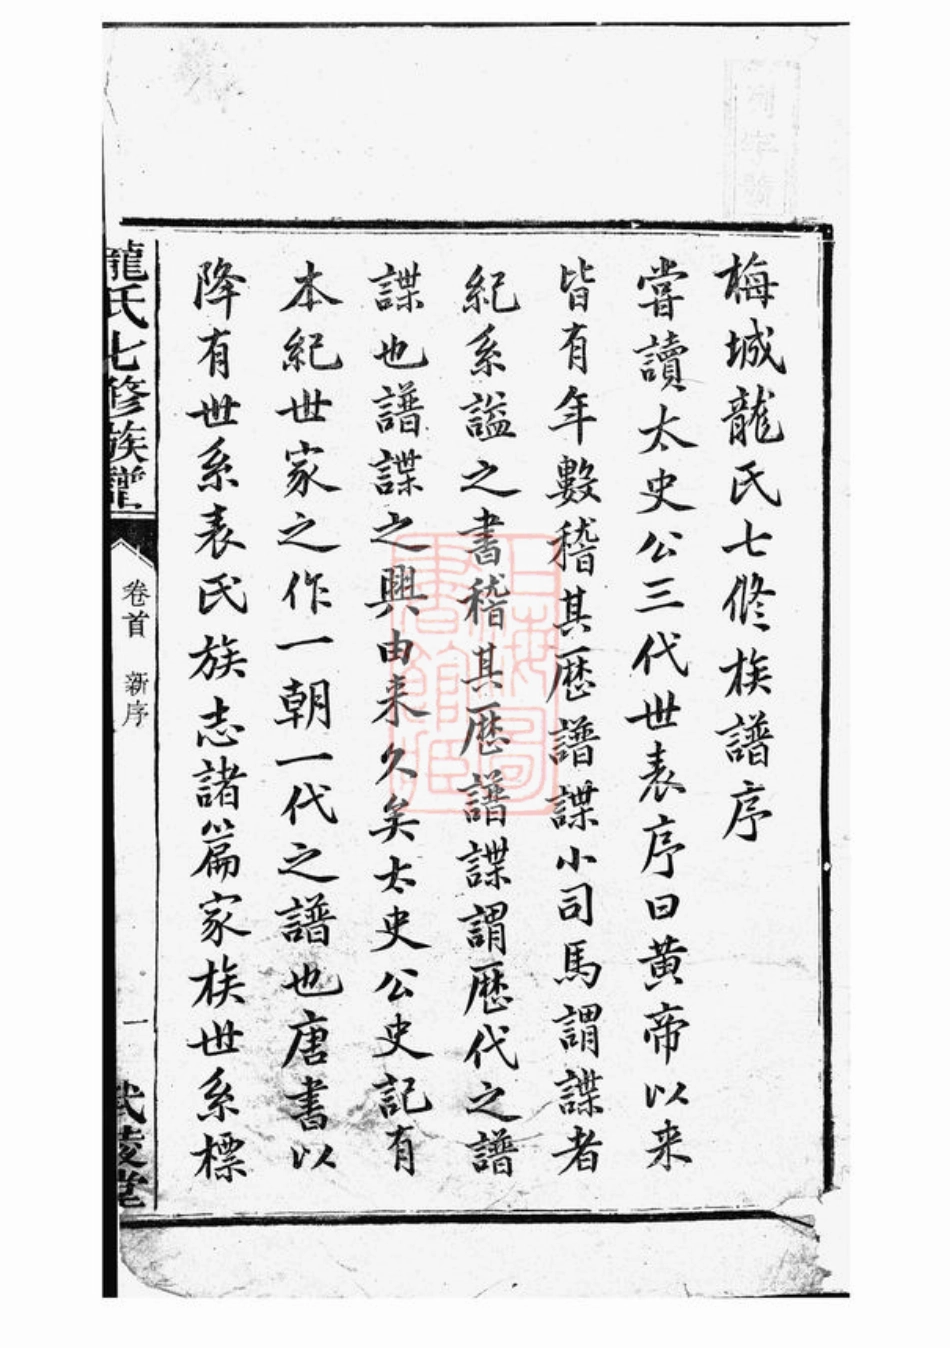 梅城龍氏七修族譜序
嘗讀太史公三代世表序曰黃帝以来
皆有年數稽其歷譜諜小司馬謂諜者
紀系謚之書稽其歷譜諜謂歷代之譜
諜也譜諜之興由来久矣太史公史記有
本紀世家之作一朝一代之譜也唐書以
降有世系表氏族志諸篇家族世系標
龍氏七修族譜
卷首 新序
一
武陵堂
上海圖
書館藏